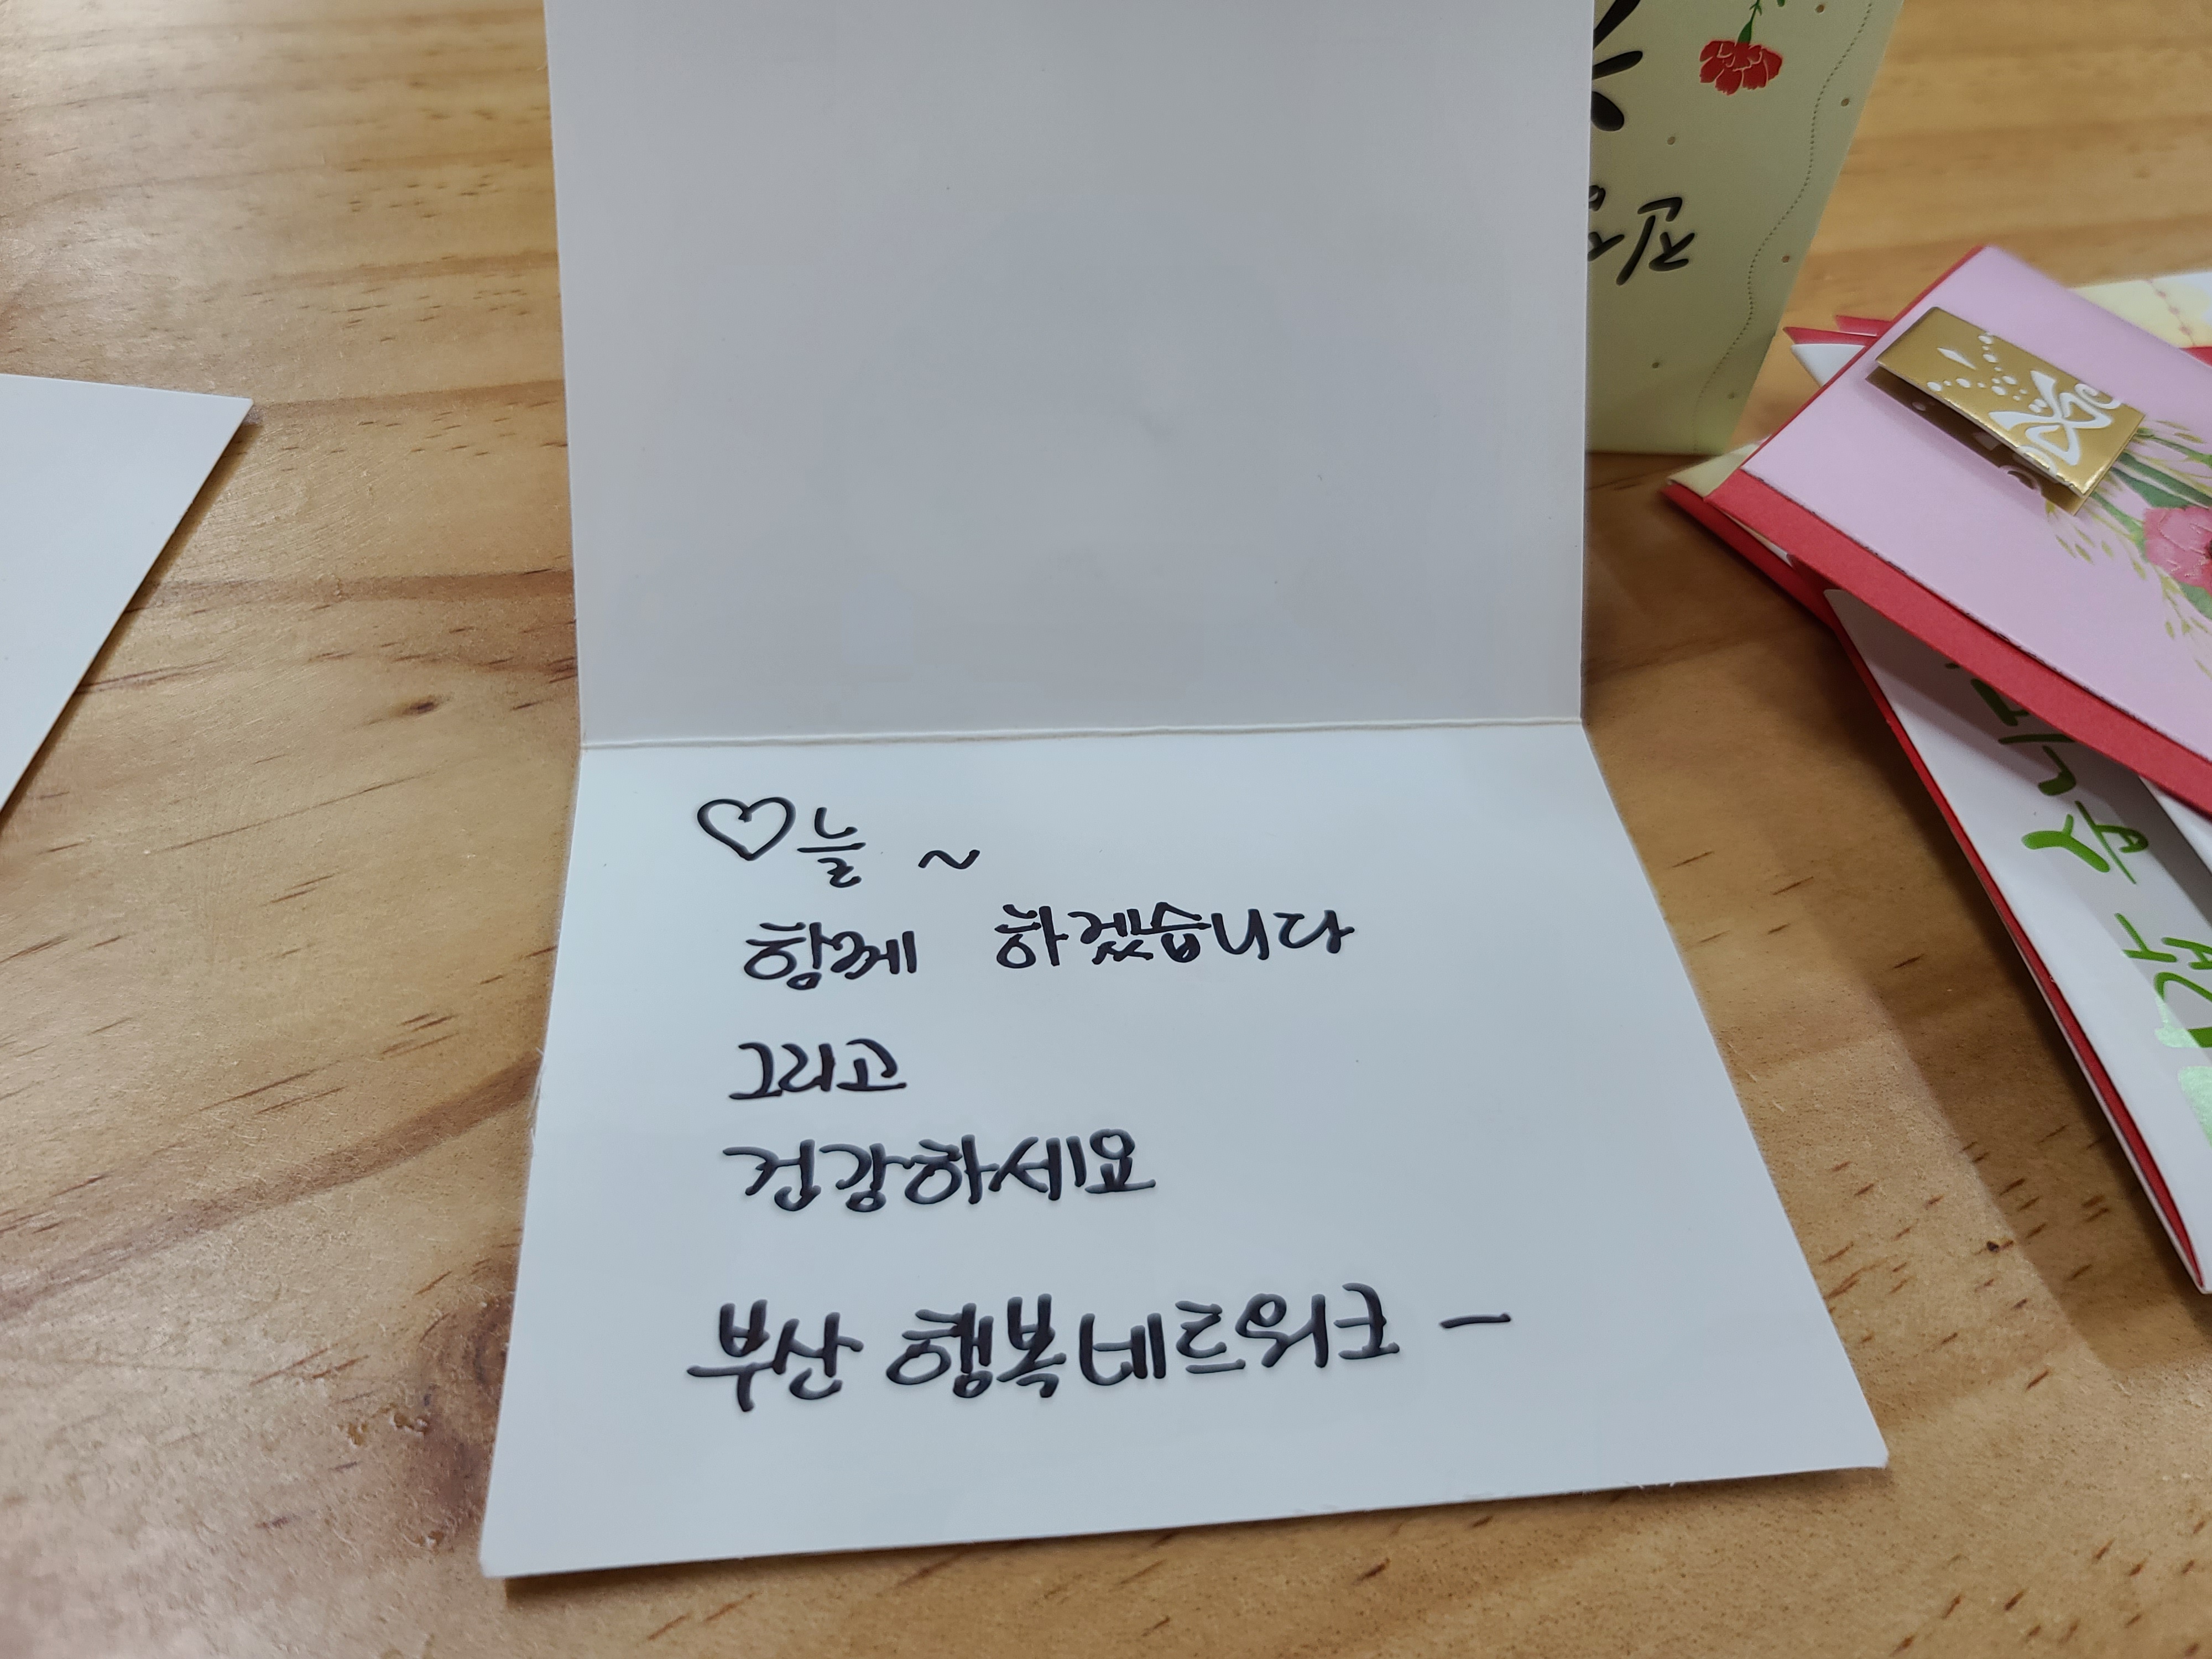 ♡늘 ~
함께 하겠습니다
그리고
건강하세요
부산 행복네트워크 -